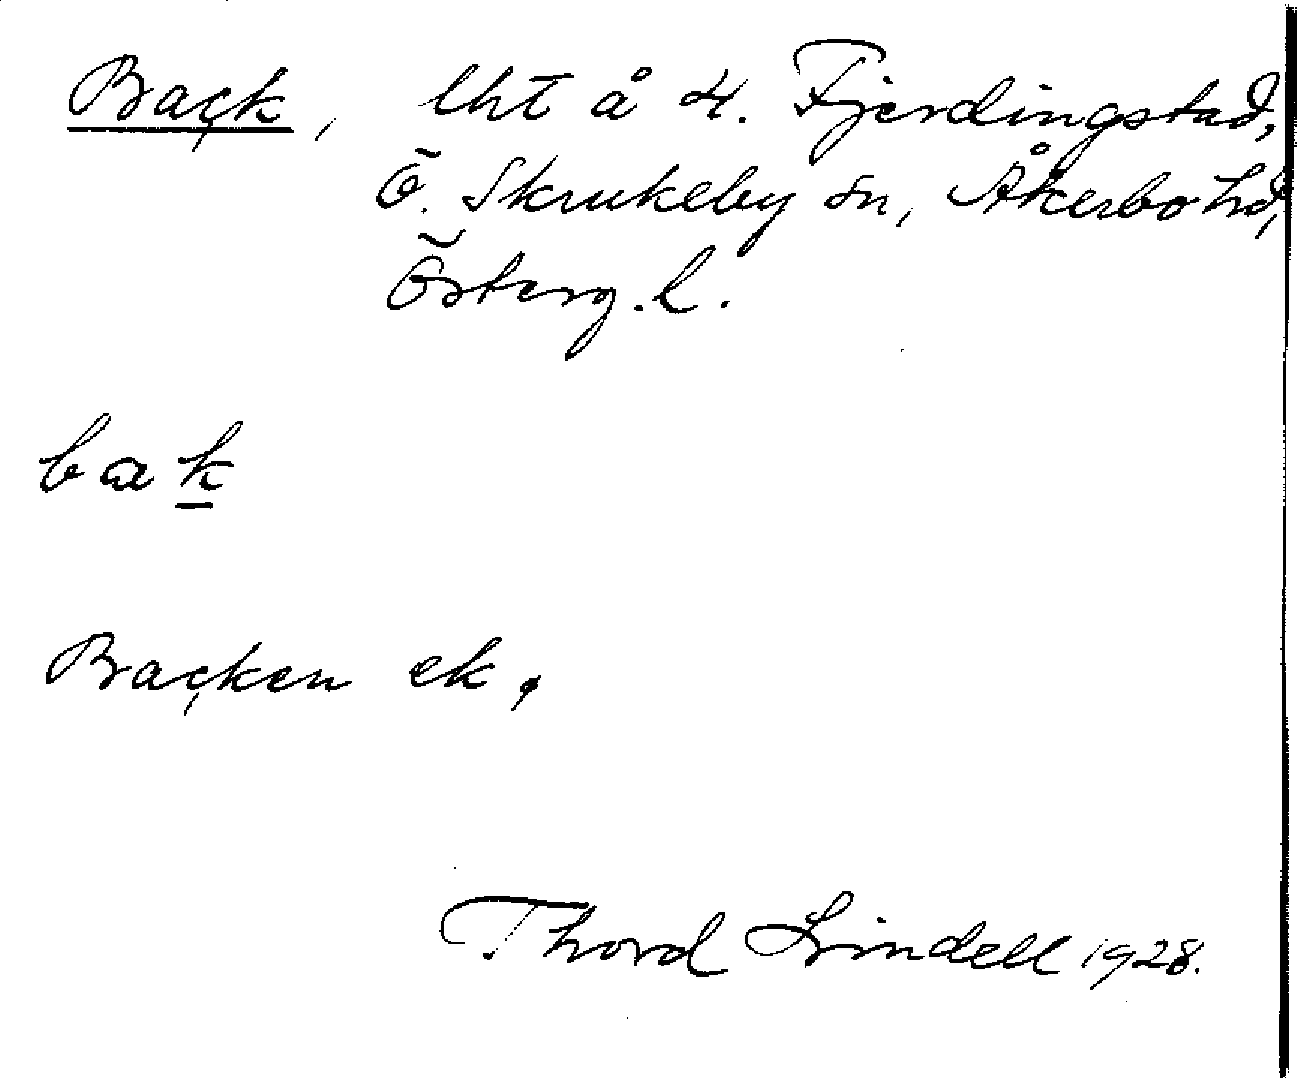 Back, lht å 4. Fjerdingstad,
Ö. Skrukeby sn, Åkerbo hd,
Österg. l.
bak
Backen ek.
Thord Lindell 1928.